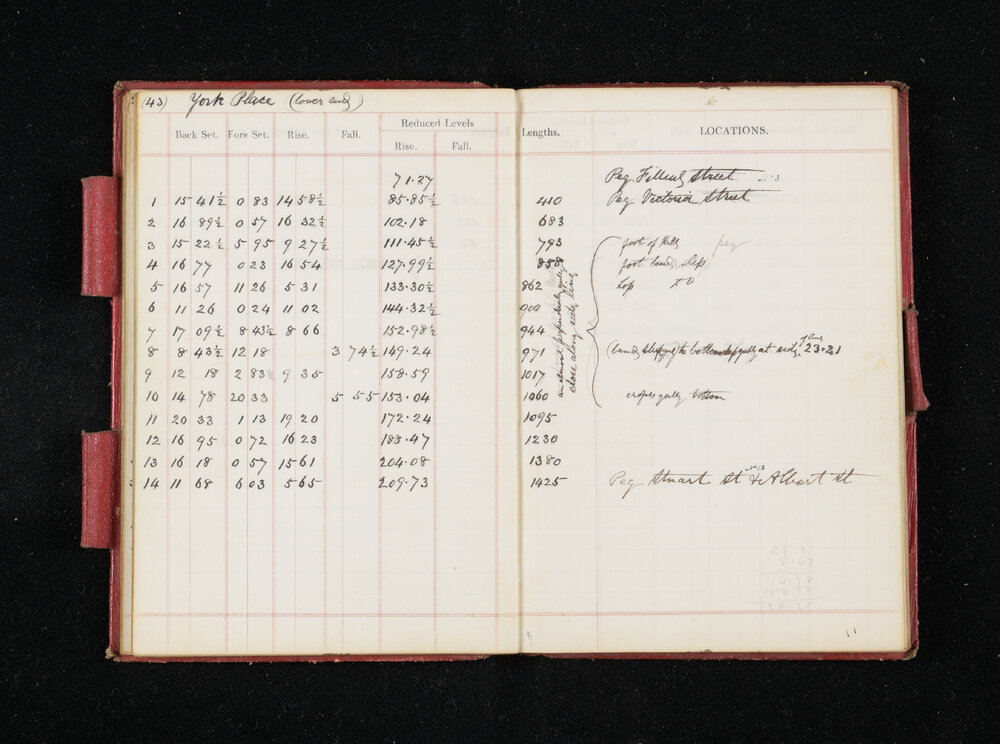 (43) York Place (lower end)
Back Set. Fore Set. Rise. Fall. Reduced Levels Lengths. LOCATIONS.
Rise. Fall.
71.27 Peg Street No 3
1 15 41½ 0 83 14 58½ 85.85½ 410 Peg Victoria Street
2 16 89½ 0 57 16 32½ 102.18 683
3 15 22½ 5 95 9 27½ 111.45½ 793 foot of Hill peg
4 16 77 0 23 16 54 127.99½ 858 foot land slip
5 16 57 11 26 5 31 133.30½ 862 top
6 11 26 0 24 11 02 144.32½ 900
7 17 09½ 8 43½ 8 66 152.98½ 944
8 8 43½ 12 18 3 74½ 149.24 971 (land slipping to bottom of gully at side of line 23.21
9 12 18 2 83 9 35 158.59 1017
10 14 78 20 33 5 55 153.04 1060 crosses gully bottom
11 20 33 1 13 19 20 172.24 1095
12 16 95 0 72 16 23 188.47 1230
13 16 18 0 57 15 61 204.08 1380
14 11 68 6 03 5 65 209.73 1425 Peg Stuart St & Albert St No 13
an almost perpendicular gully
close along side line
11